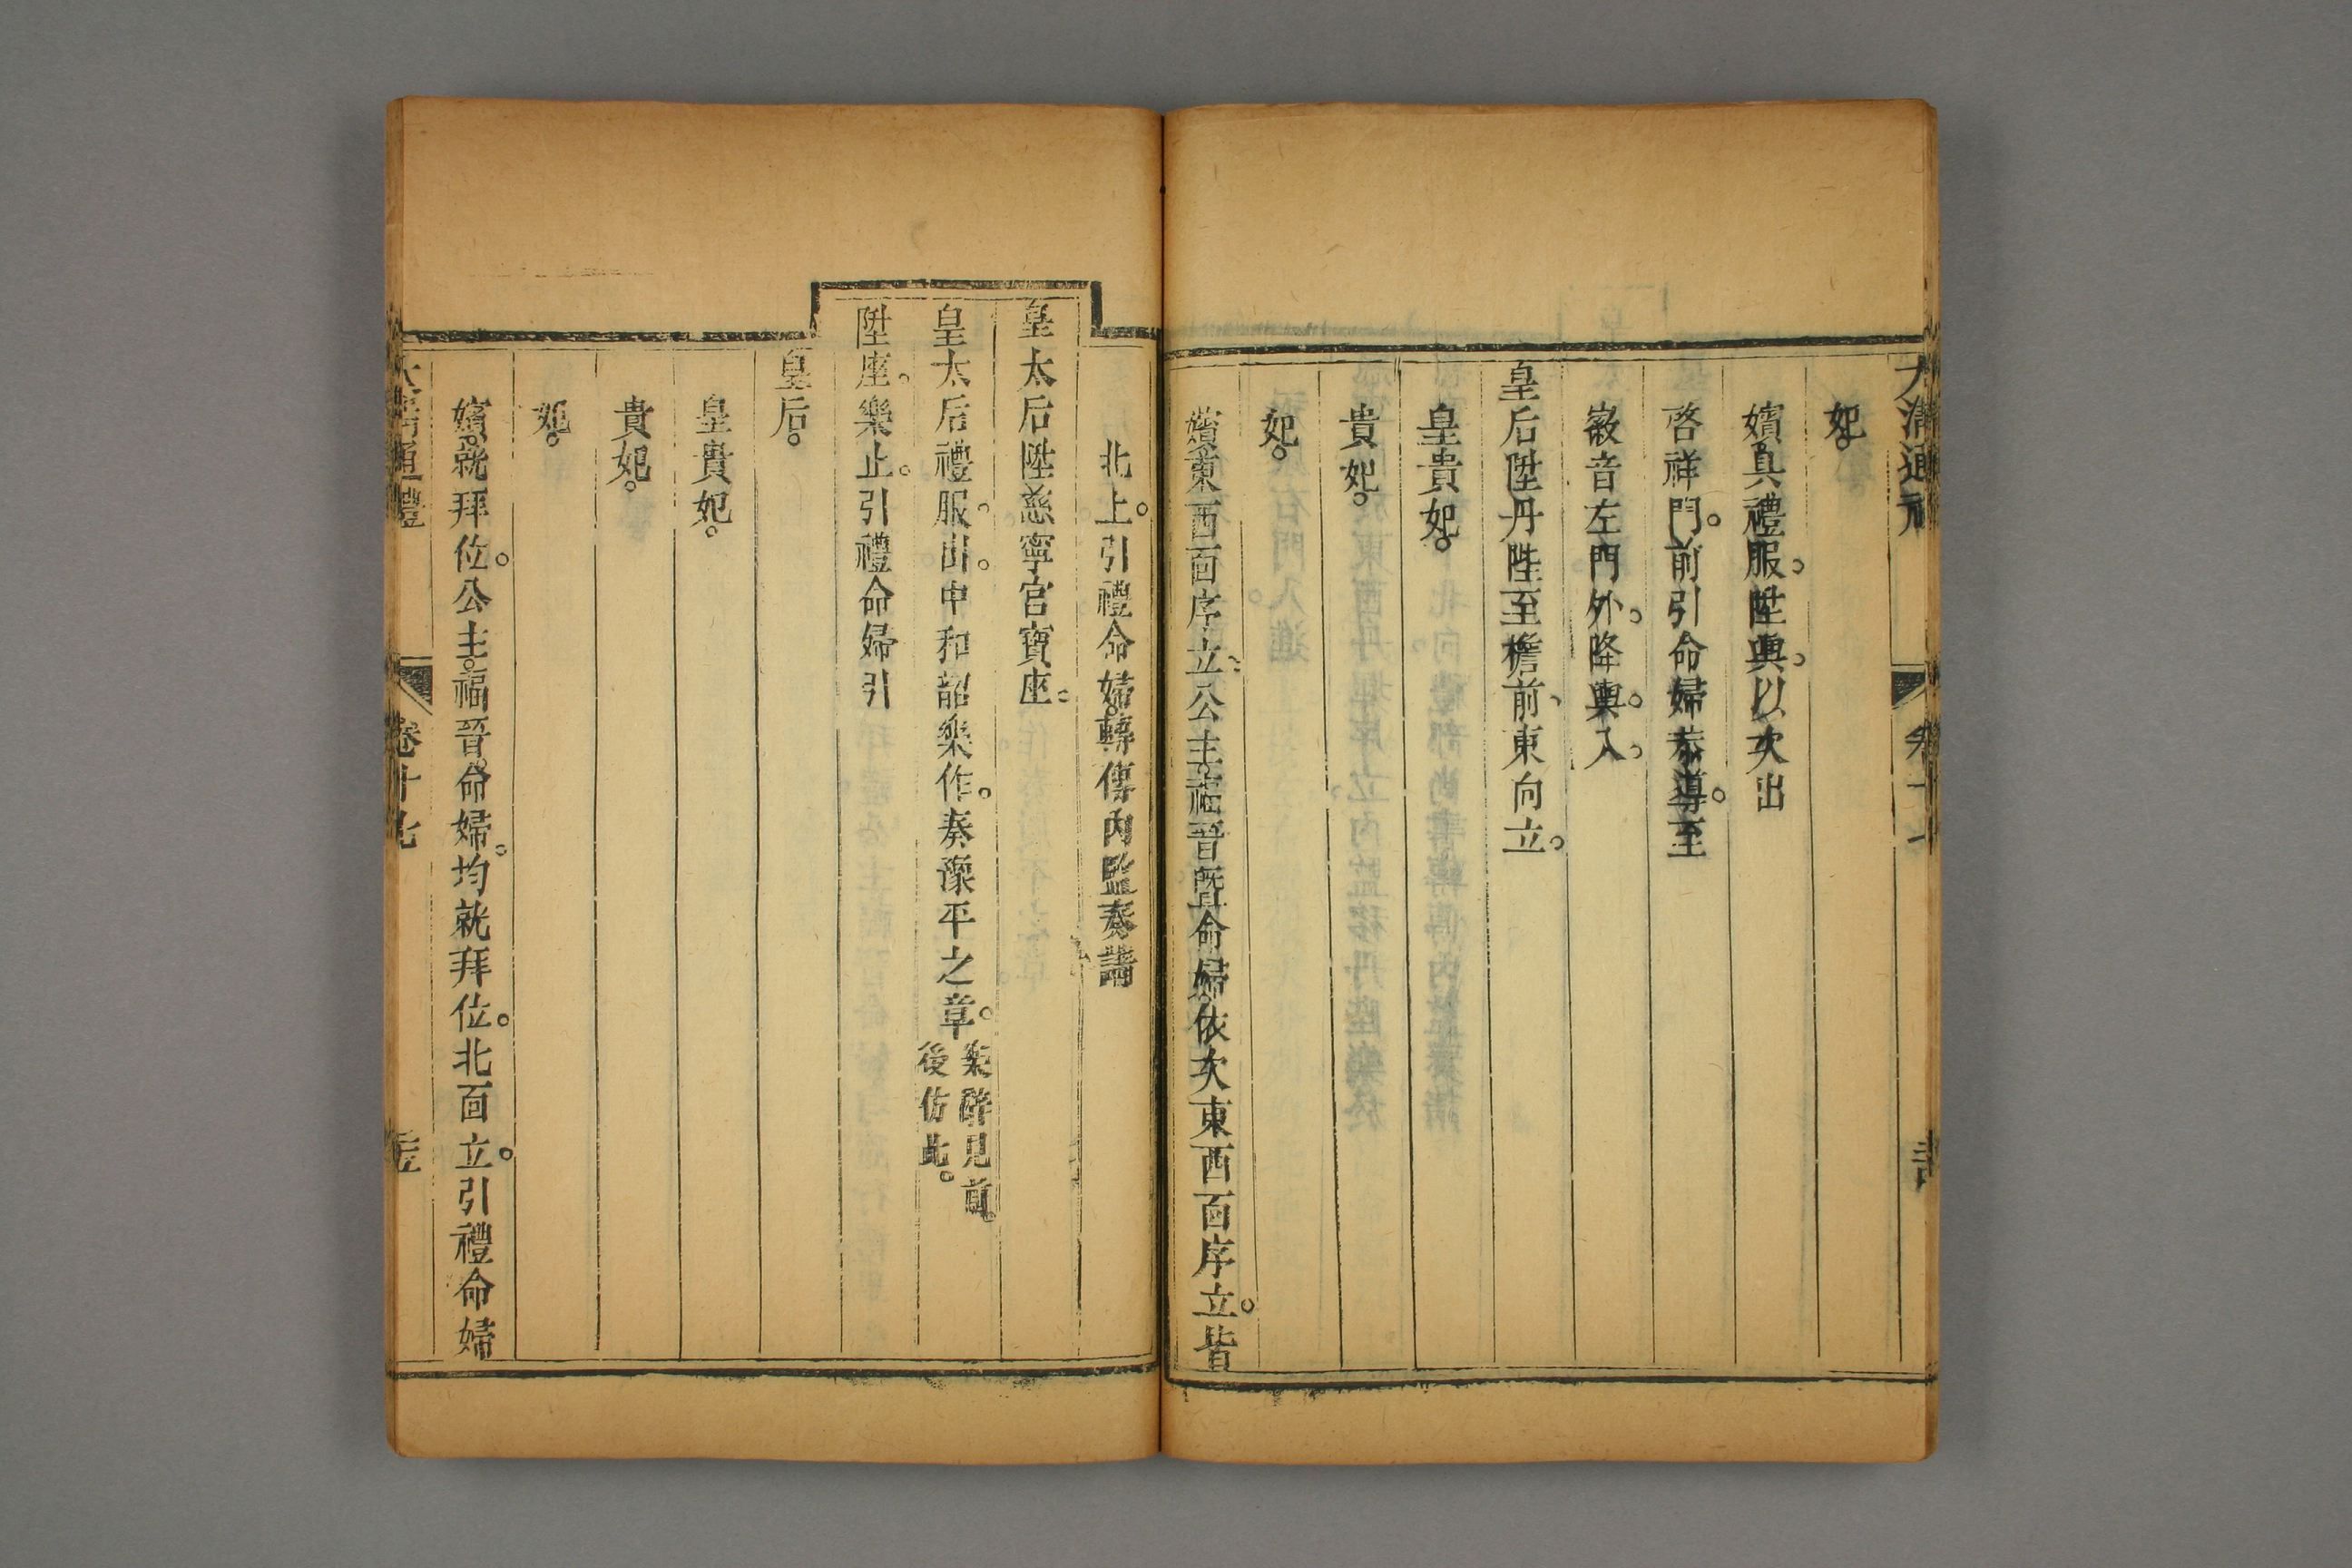 大清通禮 卷十七
妃。
嬪具禮服。陞輿。以次出
啓祥門。前引命婦恭導。至
徽音左門外。降輿。入。
皇后陞丹陛至檐前、東向立。
皇貴妃。
貴妃。
妃。
嬪東西面序立。公主。福晉暨命婦。依次東西面序立。皆
北上。引禮命婦。轉傳內監奏請
皇太后陞慈寧宮寶座。
皇太后禮服。出。中和韶樂作。奏豫平之章。樂辭見前。後仿此。
陞座。樂止。引禮命婦引
皇后。
皇貴妃。
貴妃。
妃。
嬪。就拜位。公主。福晉。命婦。均就拜位。北面立。引禮命婦
大清通禮 卷十七